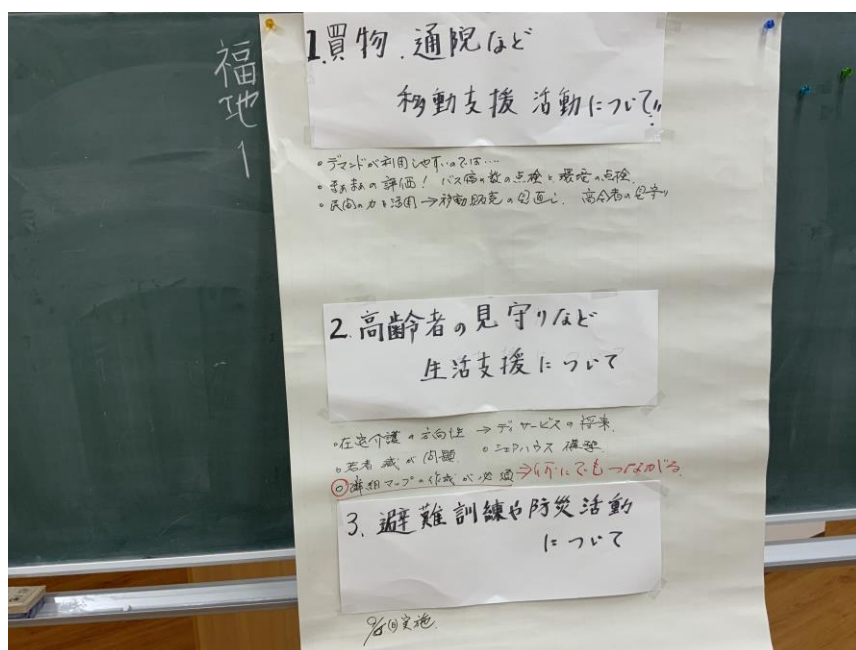 福地1
1.買物、通院など
移動支援 活動について!!
○デマンドが利用しやすいのでは…
○まあまあの評価! バス停の数の点検と環境の点検
○民間の力を活用→移動販売の見直し、高令者の見守り
2.高齢者の見守りなど
生活支援について
○在宅介護の方向性→デイサービスの将来
○若者減が問題 ○シェアハウス構想
◎詳細マップの作成が必須→何にでもつながる
3、避難訓練や防災活動
について
実施